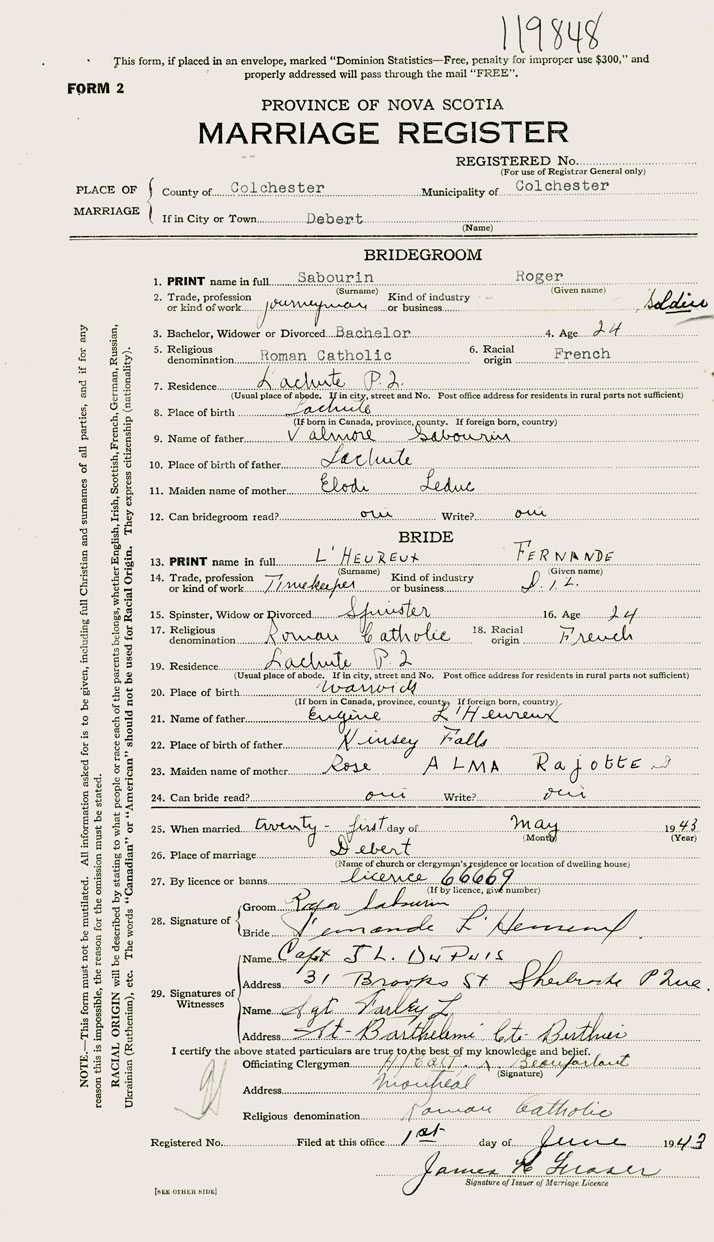 119848
This form, if placed in an envelope, marked "Dominion Statistics—Free, penalty for improper use $300," and
properly addressed will pass through the mail "FREE".
FORM 2
PROVINCE OF NOVA SCOTIA
MARRIAGE REGISTER
REGISTERED No.
(For use of Registrar General only)
PLACE OF MARRIAGE
County of Colchester Municipality of Colchester
If in City or Town Debert
(Name)
BRIDEGROOM
1. PRINT name in full Sabourin Roger
(Surname) (Given name)
2. Trade, profession or kind of work journeyman Kind of industry or business Soldier
3. Bachelor, Widower or Divorced Bachelor 4. Age 24
5. Religious denomination Roman Catholic 6. Racial origin French
7. Residence Lachute P.2.
(Usual place of abode. If in city, street and No. Post office address for residents in rural parts not sufficient)
8. Place of birth Lachute
(If born in Canada, province, county. If foreign born, country)
9. Name of father Valmore Sabourin
10. Place of birth of father Lachute
11. Maiden name of mother Elodi Leduc
12. Can bridegroom read? oui Write? oui
BRIDE
13. PRINT name in full L'HEUREUX FERNANDE
(Surname) (Given name)
14. Trade, profession or kind of work Timekeeper Kind of industry or business D.I.L.
15. Spinster, Widow or Divorced Spinster 16. Age 24
17. Religious denomination Roman Catholic 18. Racial origin French
19. Residence Lachute P.2
(Usual place of abode. If in city, street and No. Post office address for residents in rural parts not sufficient)
20. Place of birth Warwick
(If born in Canada, province, county. If foreign born, country)
21. Name of father Eugène L'Heureux
22. Place of birth of father Kinsey Falls
23. Maiden name of mother Rose ALMA Rajotte
24. Can bride read? oui Write? oui
25. When married twenty-first day of May 1943
(Month) (Year)
26. Place of marriage Debert
(Name of church or clergyman's residence or location of dwelling house)
27. By licence or banns licence 66669
(If by licence, give number)
28. Signature of
Groom Roger Sabourin
Bride Fernande L'Heureux
29. Signatures of Witnesses
Name Capt J L. DuPuis
Address 31 Brooks St Sherbrooke P Que.
Name Sgt Farley L
Address St-Barthelemi Cte. Berthier
I certify the above stated particulars are true to the best of my knowledge and belief.
Officiating Clergyman H/Capt.
(Signature)
Address Montréal
Religious denomination Roman Catholic
Registered No. Filed at this office 1st day of June 1943
James Fraser
Signature of Issuer of Marriage Licence
[SEE OTHER SIDE]
NOTE.—This form must not be mutilated. All information asked for is to be given, including full Christian and surnames of all parties, and if for any
reason this is impossible, the reason for the omission must be stated.
RACIAL ORIGIN will be described by stating to what people or race each of the parents belongs, whether English, Irish, Scottish, French, German, Russian,
Ukrainian (Ruthenian), etc. The words "Canadian" or "American" should not be used for Racial Origin. They express citizenship (nationality).